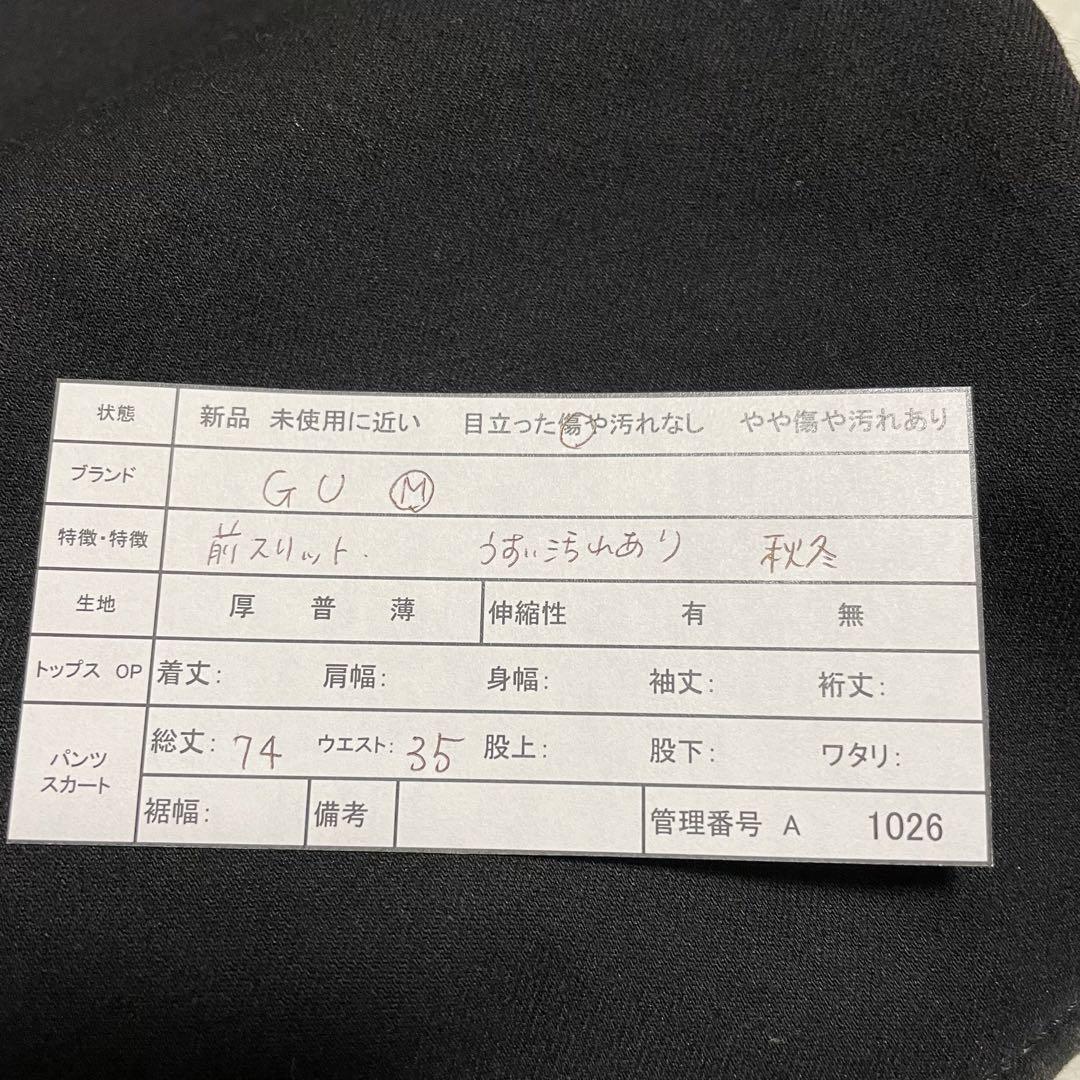 状態 新品 未使用に近い 目立った傷や汚れなし やや傷や汚れあり
ブランド GU M
特徴・特徴 前スリット. うすい汚れあり 秋冬
生地 厚 普 薄 伸縮性 有 無
トップス OP 着丈: 肩幅: 身幅: 袖丈: 裄丈:
パンツ スカート 総丈: 74 ウエスト: 35 股上: 股下: ワタリ:
裾幅: 備考 管理番号 A 1026